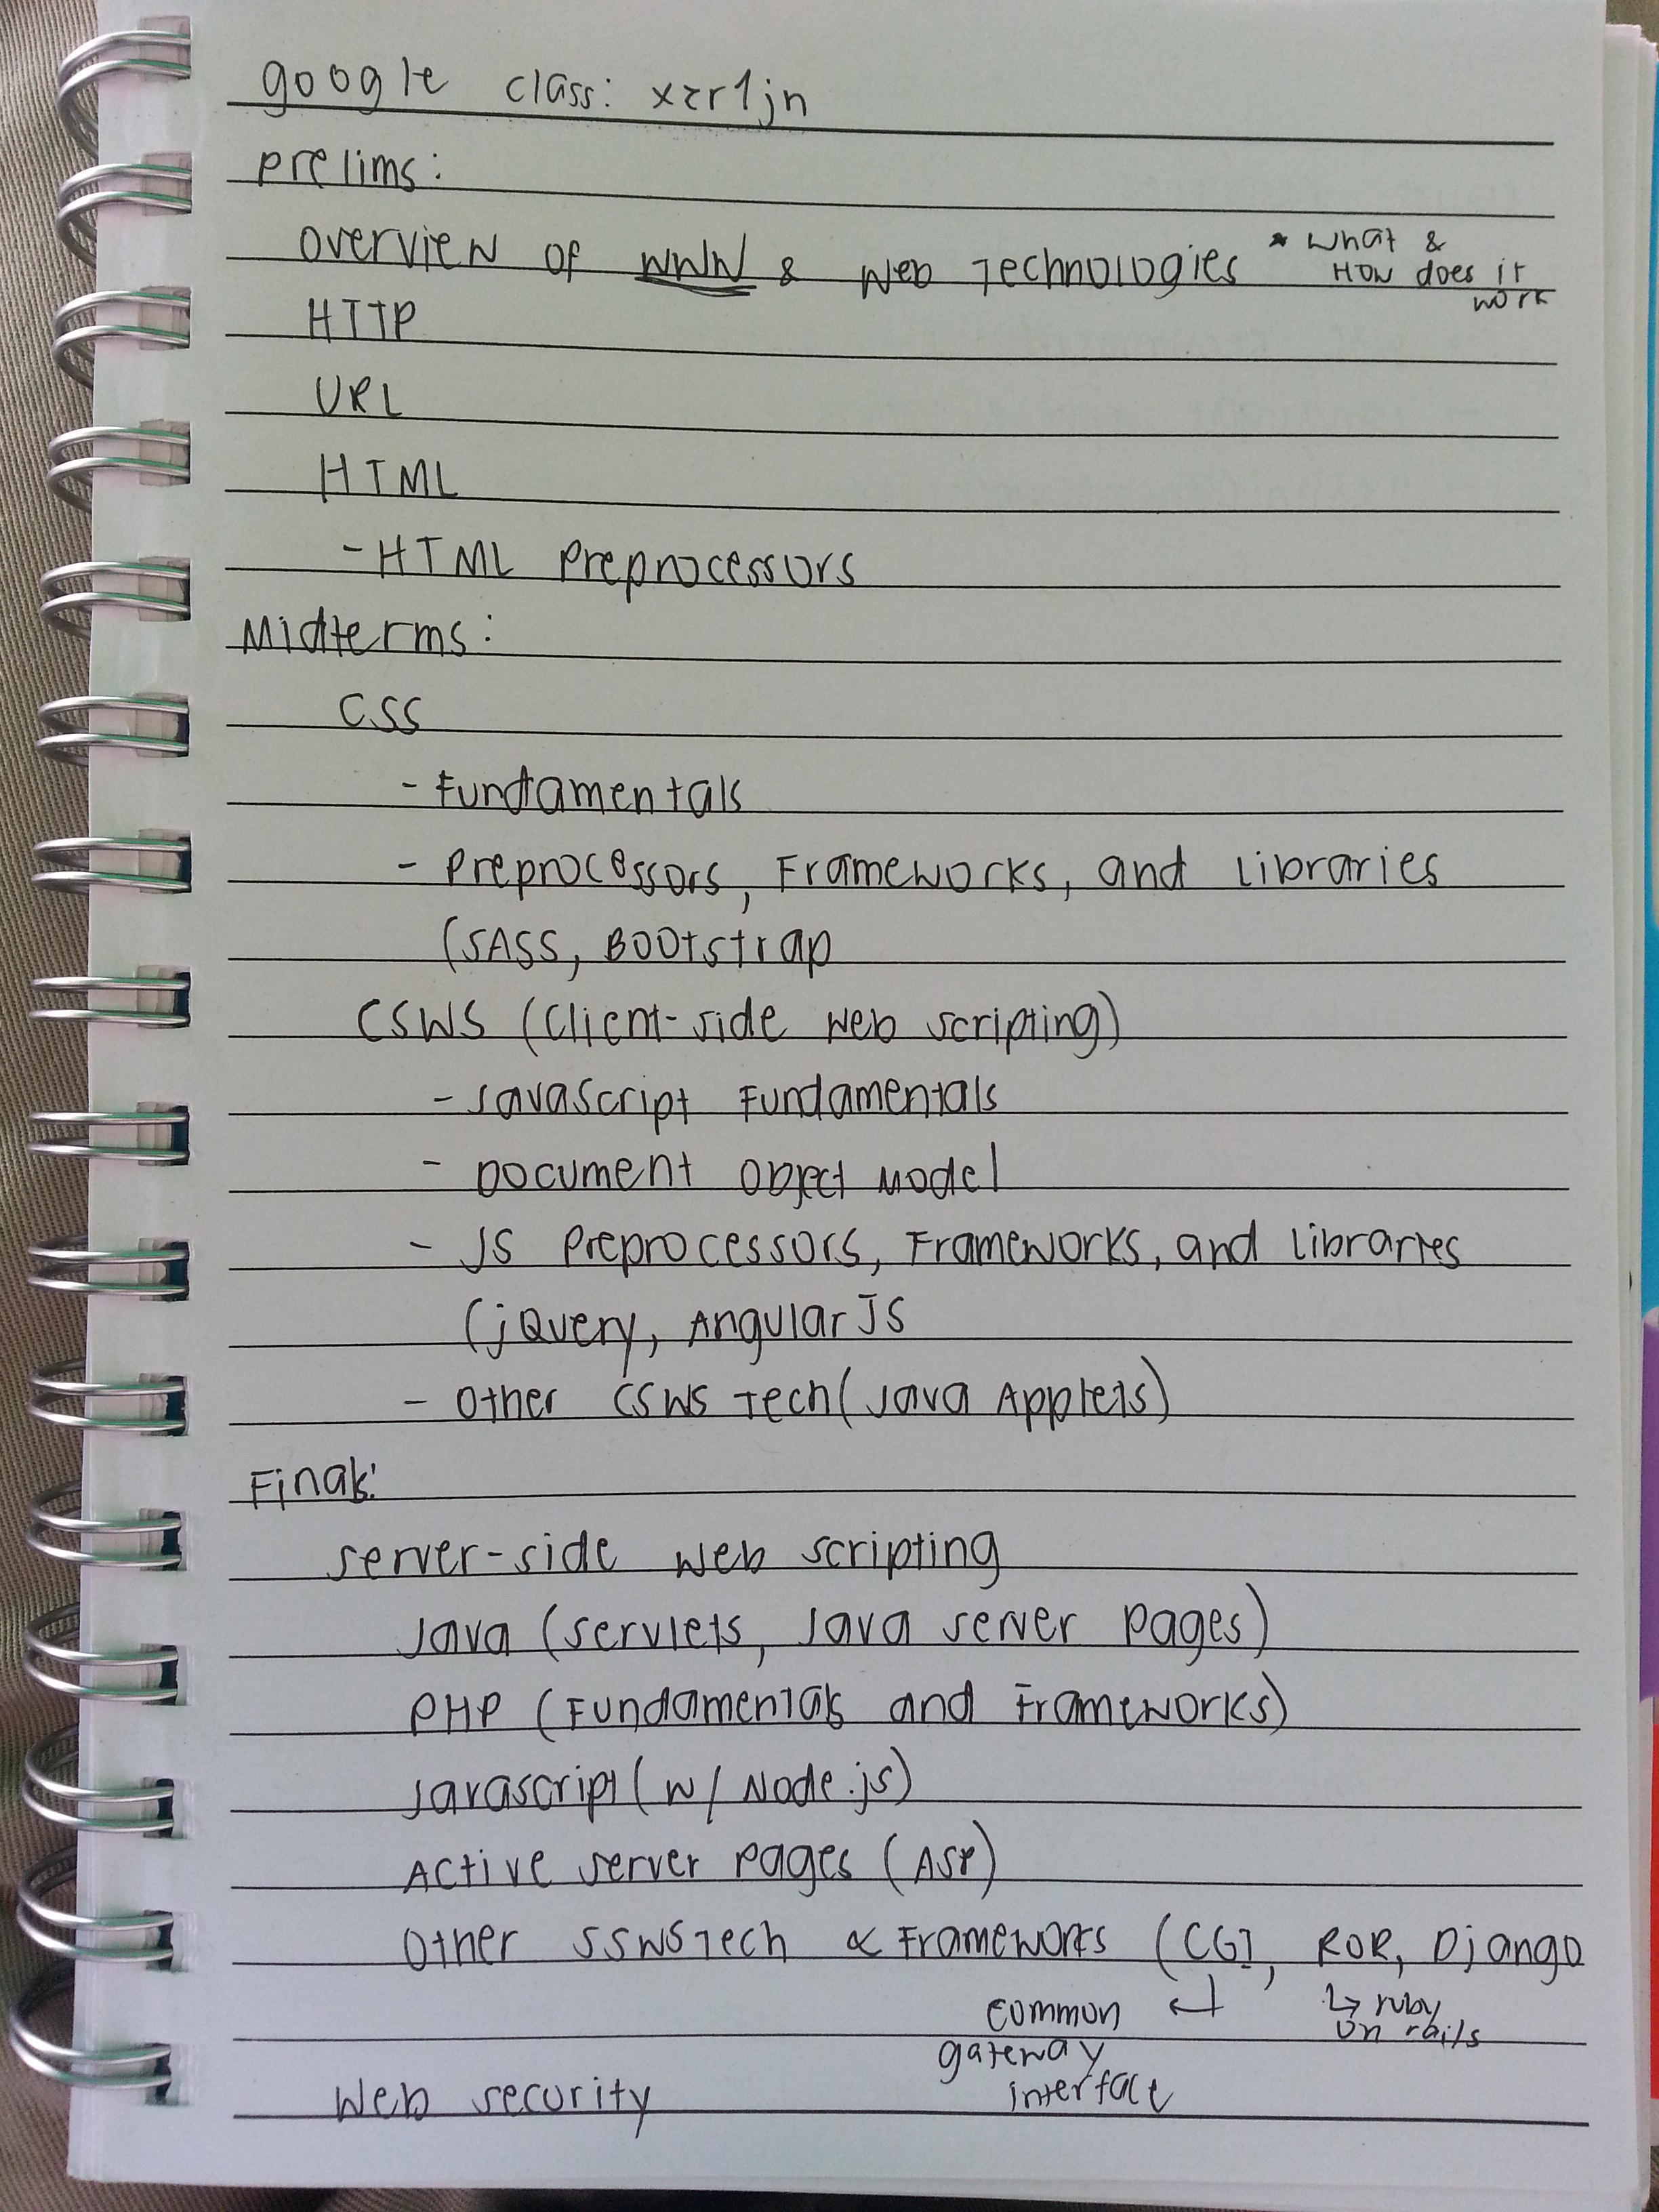 google class: xzr1jn
prelims:
overview of WWW & Web Technologies * what &
How does it
work
HTTP
URL
HTML
- HTML Preprocessors
Midterms:
CSS
- Fundamentals
- Preprocessors, Frameworks, and Libraries
(SASS, Bootstrap
CSWS (Client-side web scripting)
- Javascript Fundamentals
- Document Object Model
- JS Preprocessors, Frameworks, and Libraries
(jQuery, AngularJS
- Other CSWS Tech (Java Applets)
Finals:
server-side web scripting
Java (servlets, Java server pages)
PHP (Fundamentals and Frameworks)
Javascript (w/ Node.js)
Active server pages (ASP)
Other SSWS Tech & Frameworks (CGI, ROR, Django
common ↵ ↳ ruby
on rails
gateway
interface
Web security